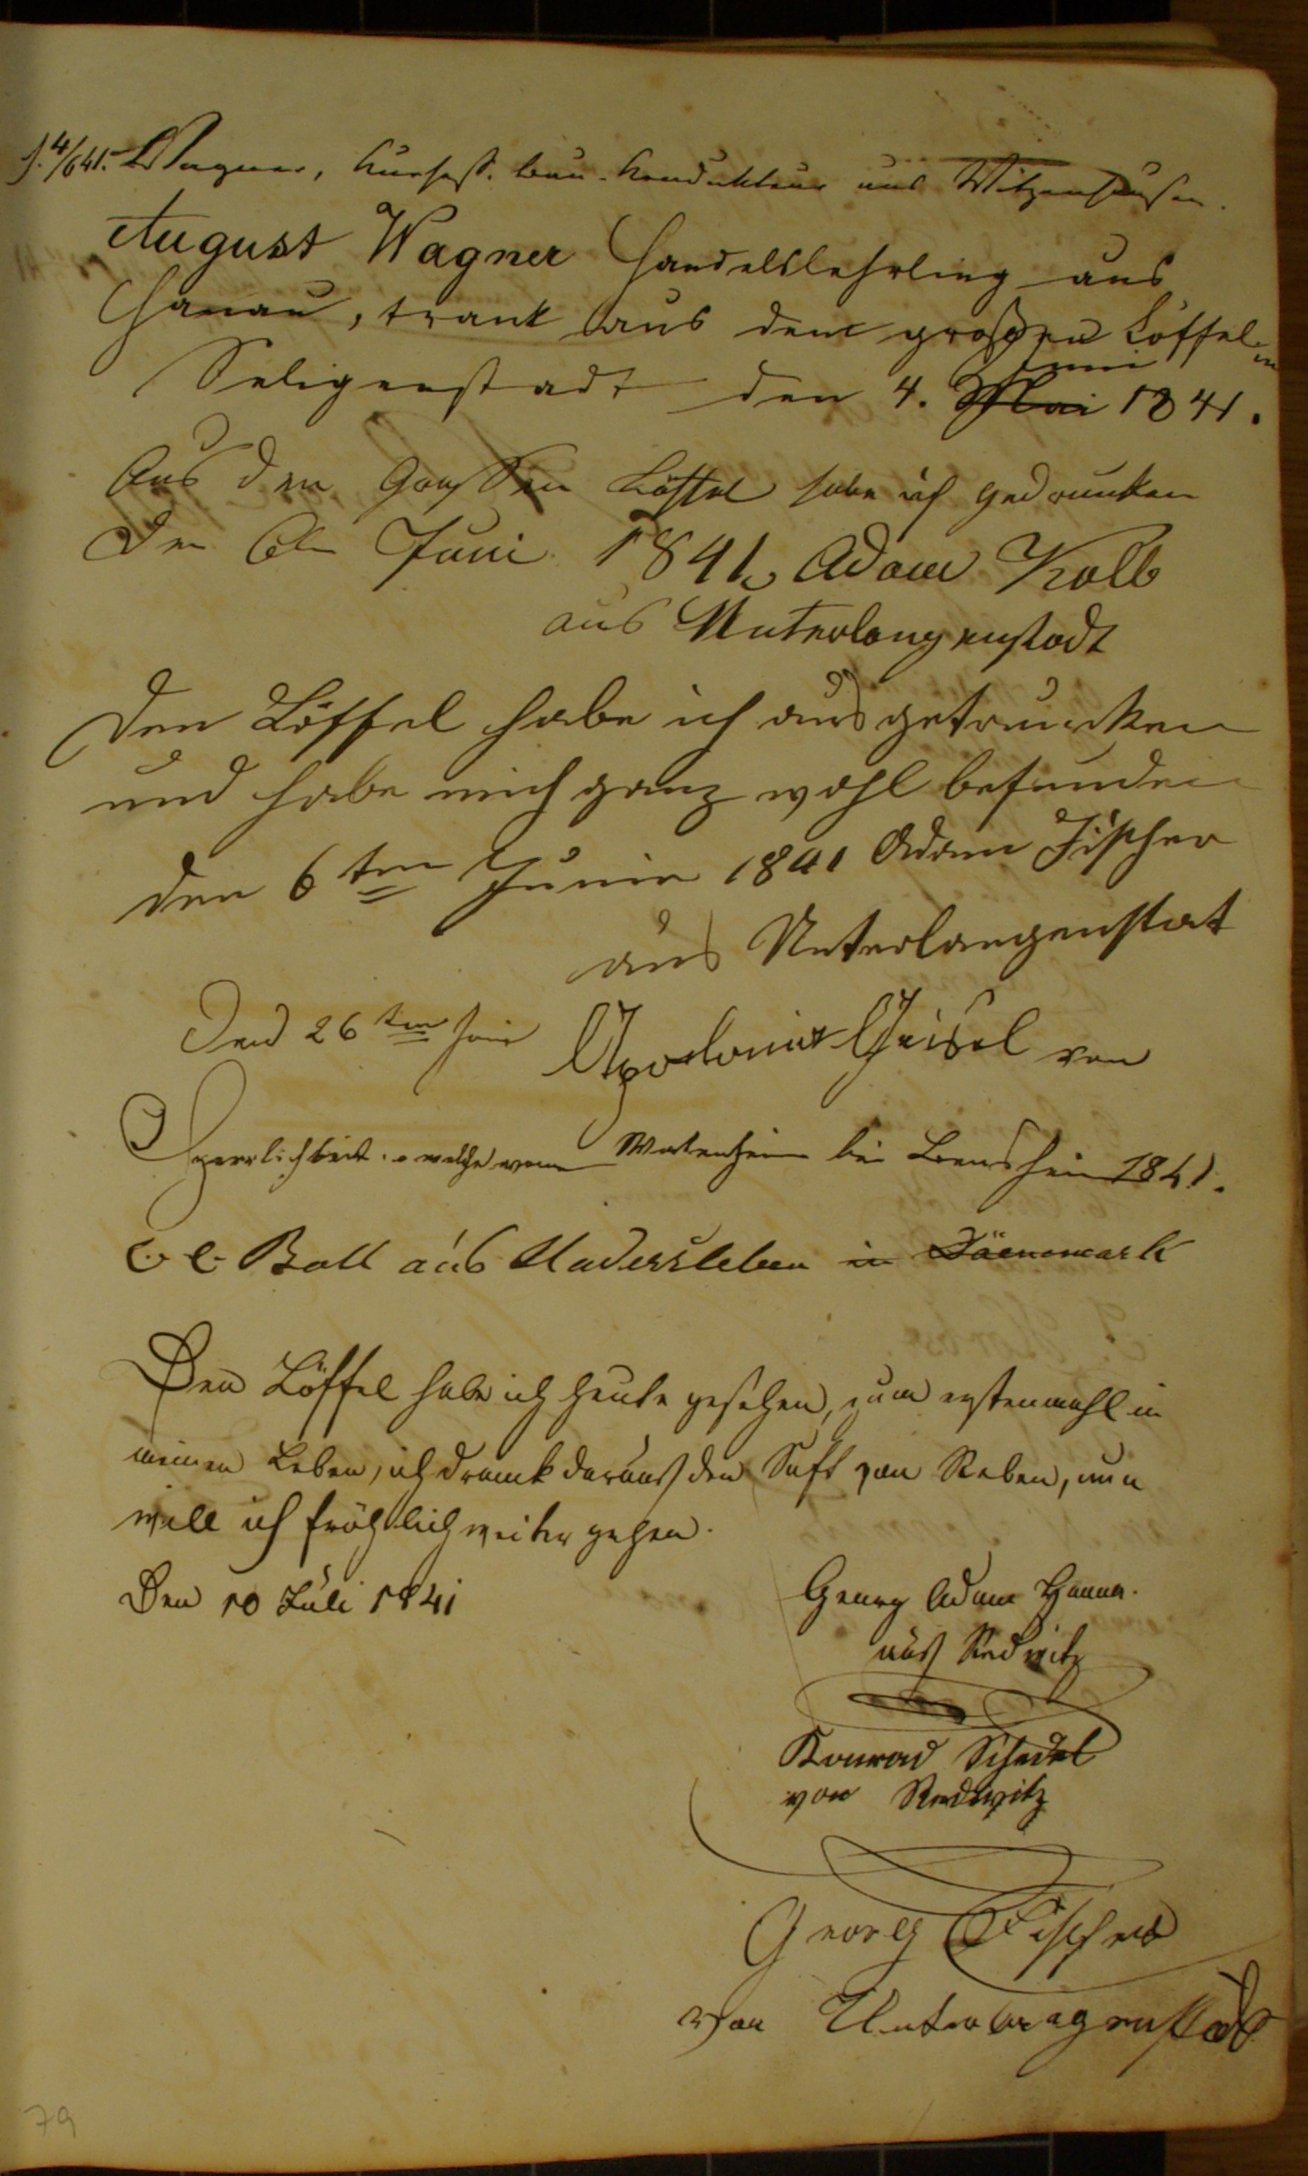 d. 4/6 41. Wagner, Kurhess. Bau-Kondukteur aus Witzenhausen.
August Wagner Handelslehrling aus
Hanau, trank aus dem großen Löffel in
Seligenstadt den 4. Mai Juni 1841.
Aus den Großen Löffel habe ich gedrunken
den 6ten Juni 1841 Adam Kolb
aus Unterlangenstadt
Den Löffel habe ich ausgetruncken
und habe mich ganz wohl befunden
den 6ten Junie 1841 Adam Fischer
aus Unterlangenstat
Den 26ten Appolonia Geisel von
welche von Watenheim bei Bensheim 1841.
C. C. Ball aus Hadersleben in Däenemark
Den Löffel habe ich heute gesehen, zum erstenmahl in
meinen Leben, ich dranck darauß den Saft von Reben, nun
will ich fröhlich weiter gehen.
Den 10 Juli 1841
Georg Adam
auß Redwitz
Konrad Schedel
von Redwitz
Georg Fischer
von Unterlangenstadt
79